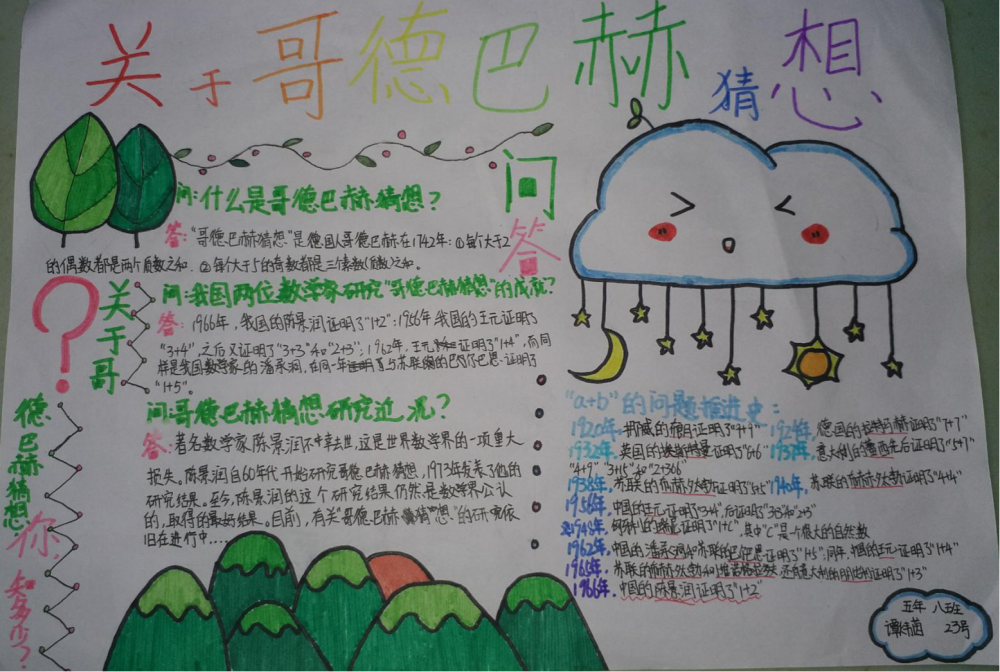 关于哥德巴赫猜想
问:什么是哥德巴赫猜想？
问答
答:"哥德巴赫猜想"是德国人哥德巴赫在1742年:①每个大于2
的偶数都是两个质数之和.②每个大于5的奇数都是三个素数(质数)之和。
?关于哥德巴赫猜想你知多少?
问:我国两位数学家研究"哥德巴赫猜想"的成就?
答:1966年,我国的陈景润证明了"1+2";1956年我国的王元证明了
"3+4",之后又证明了"3+3"和"2+3";1962年,王元证明了"1+4",而同
样是我国数学家的潘承洞,在同一年与苏联的巴尔巴恩证明了
"1+5"。
问:哥德巴赫猜想研究近况?
答:著名数学家陈景润不幸去世,这是世界数学界的一项重大
损失。陈景润自60年代开始研究哥德巴赫猜想,1973年发表了他的
研究结果。至今,陈景润的这个研究结果仍然是数学界公认
的,取得的最好结果。目前,有关"哥德巴赫猜想"的研究依
旧在进行中....
"a+b"的问题推进史:
1920年,挪威的布朗证明了"9+9" 1924年,德国的证明了"7+7"
1932年,英国的证明了"6+6" 1937年,意大利的先后证明了"5+7"
"4+9" "3+15"和"2+366"
1938年,苏联的证明了"5+5" 1940年,苏联的证明了"4+4"
1956年,中国的王元证明了"3+4",后证明了"3+3"和"2+3"
1948年,匈牙利的证明了"1+C",其中"C"是个很大的自然数
1962年,中国的潘承洞和苏联的巴尔巴恩证明了"1+5";同年,中国的王元证明了"1+4"
1965年,苏联的和,还有意大利的证明了"1+3"
1966年,中国的陈景润证明了"1+2"
五年八班
谭 23号